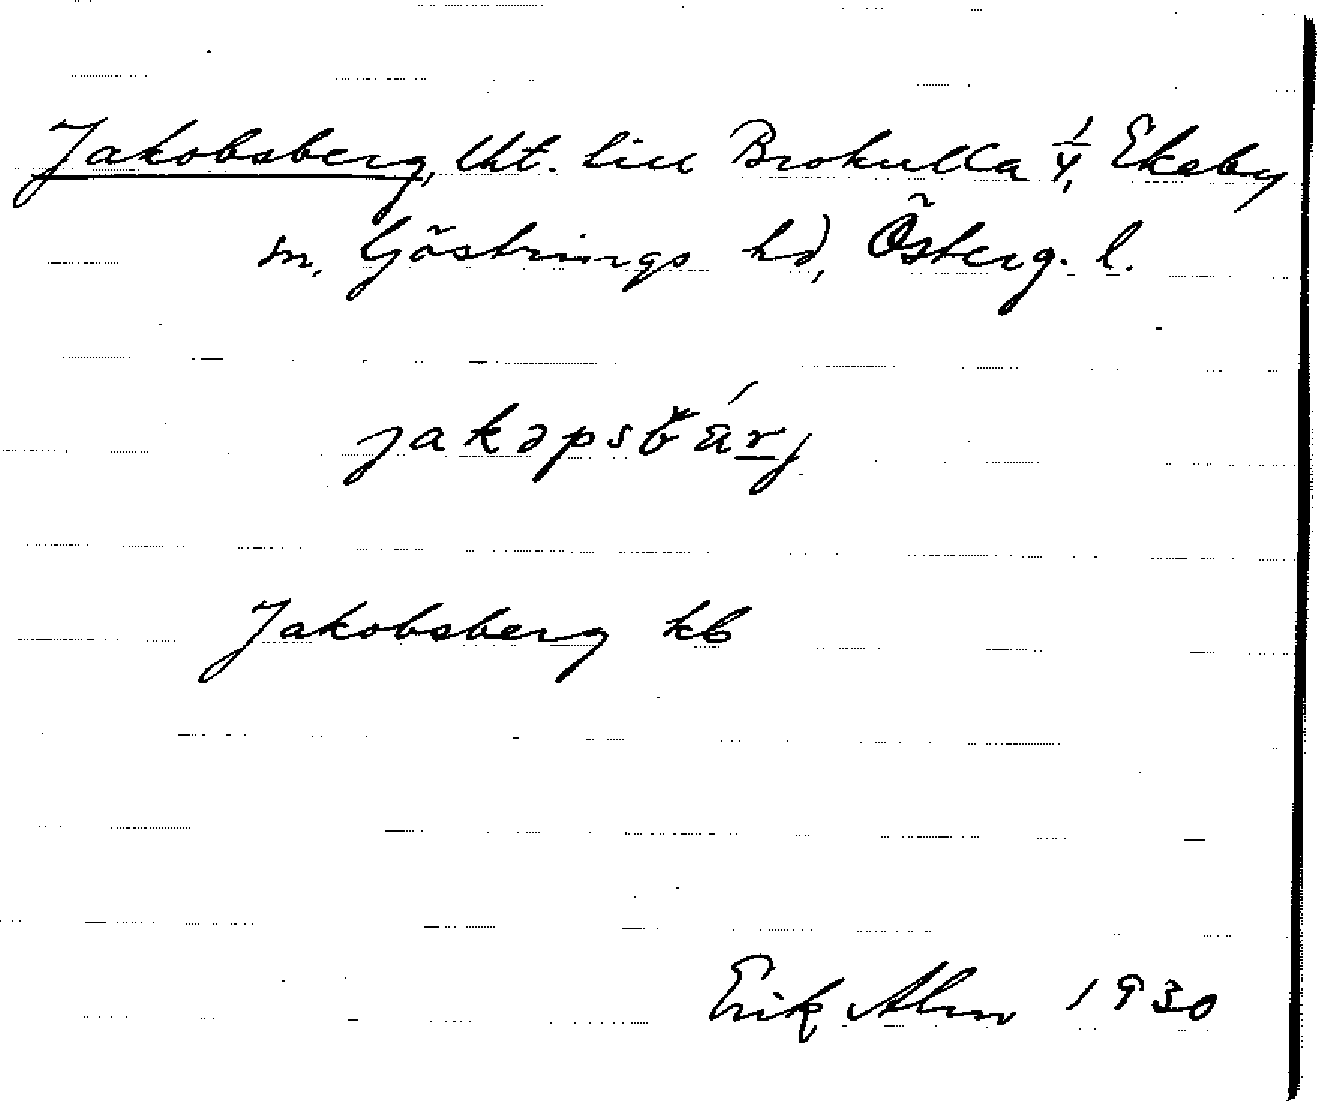 Jakobsberg, lht. till Brokulla 1/4, Ekeby
sn, Göstrings hd, Österg. l.
jakəpsbärj
Jakobsberg kb
Erik Alm 1930